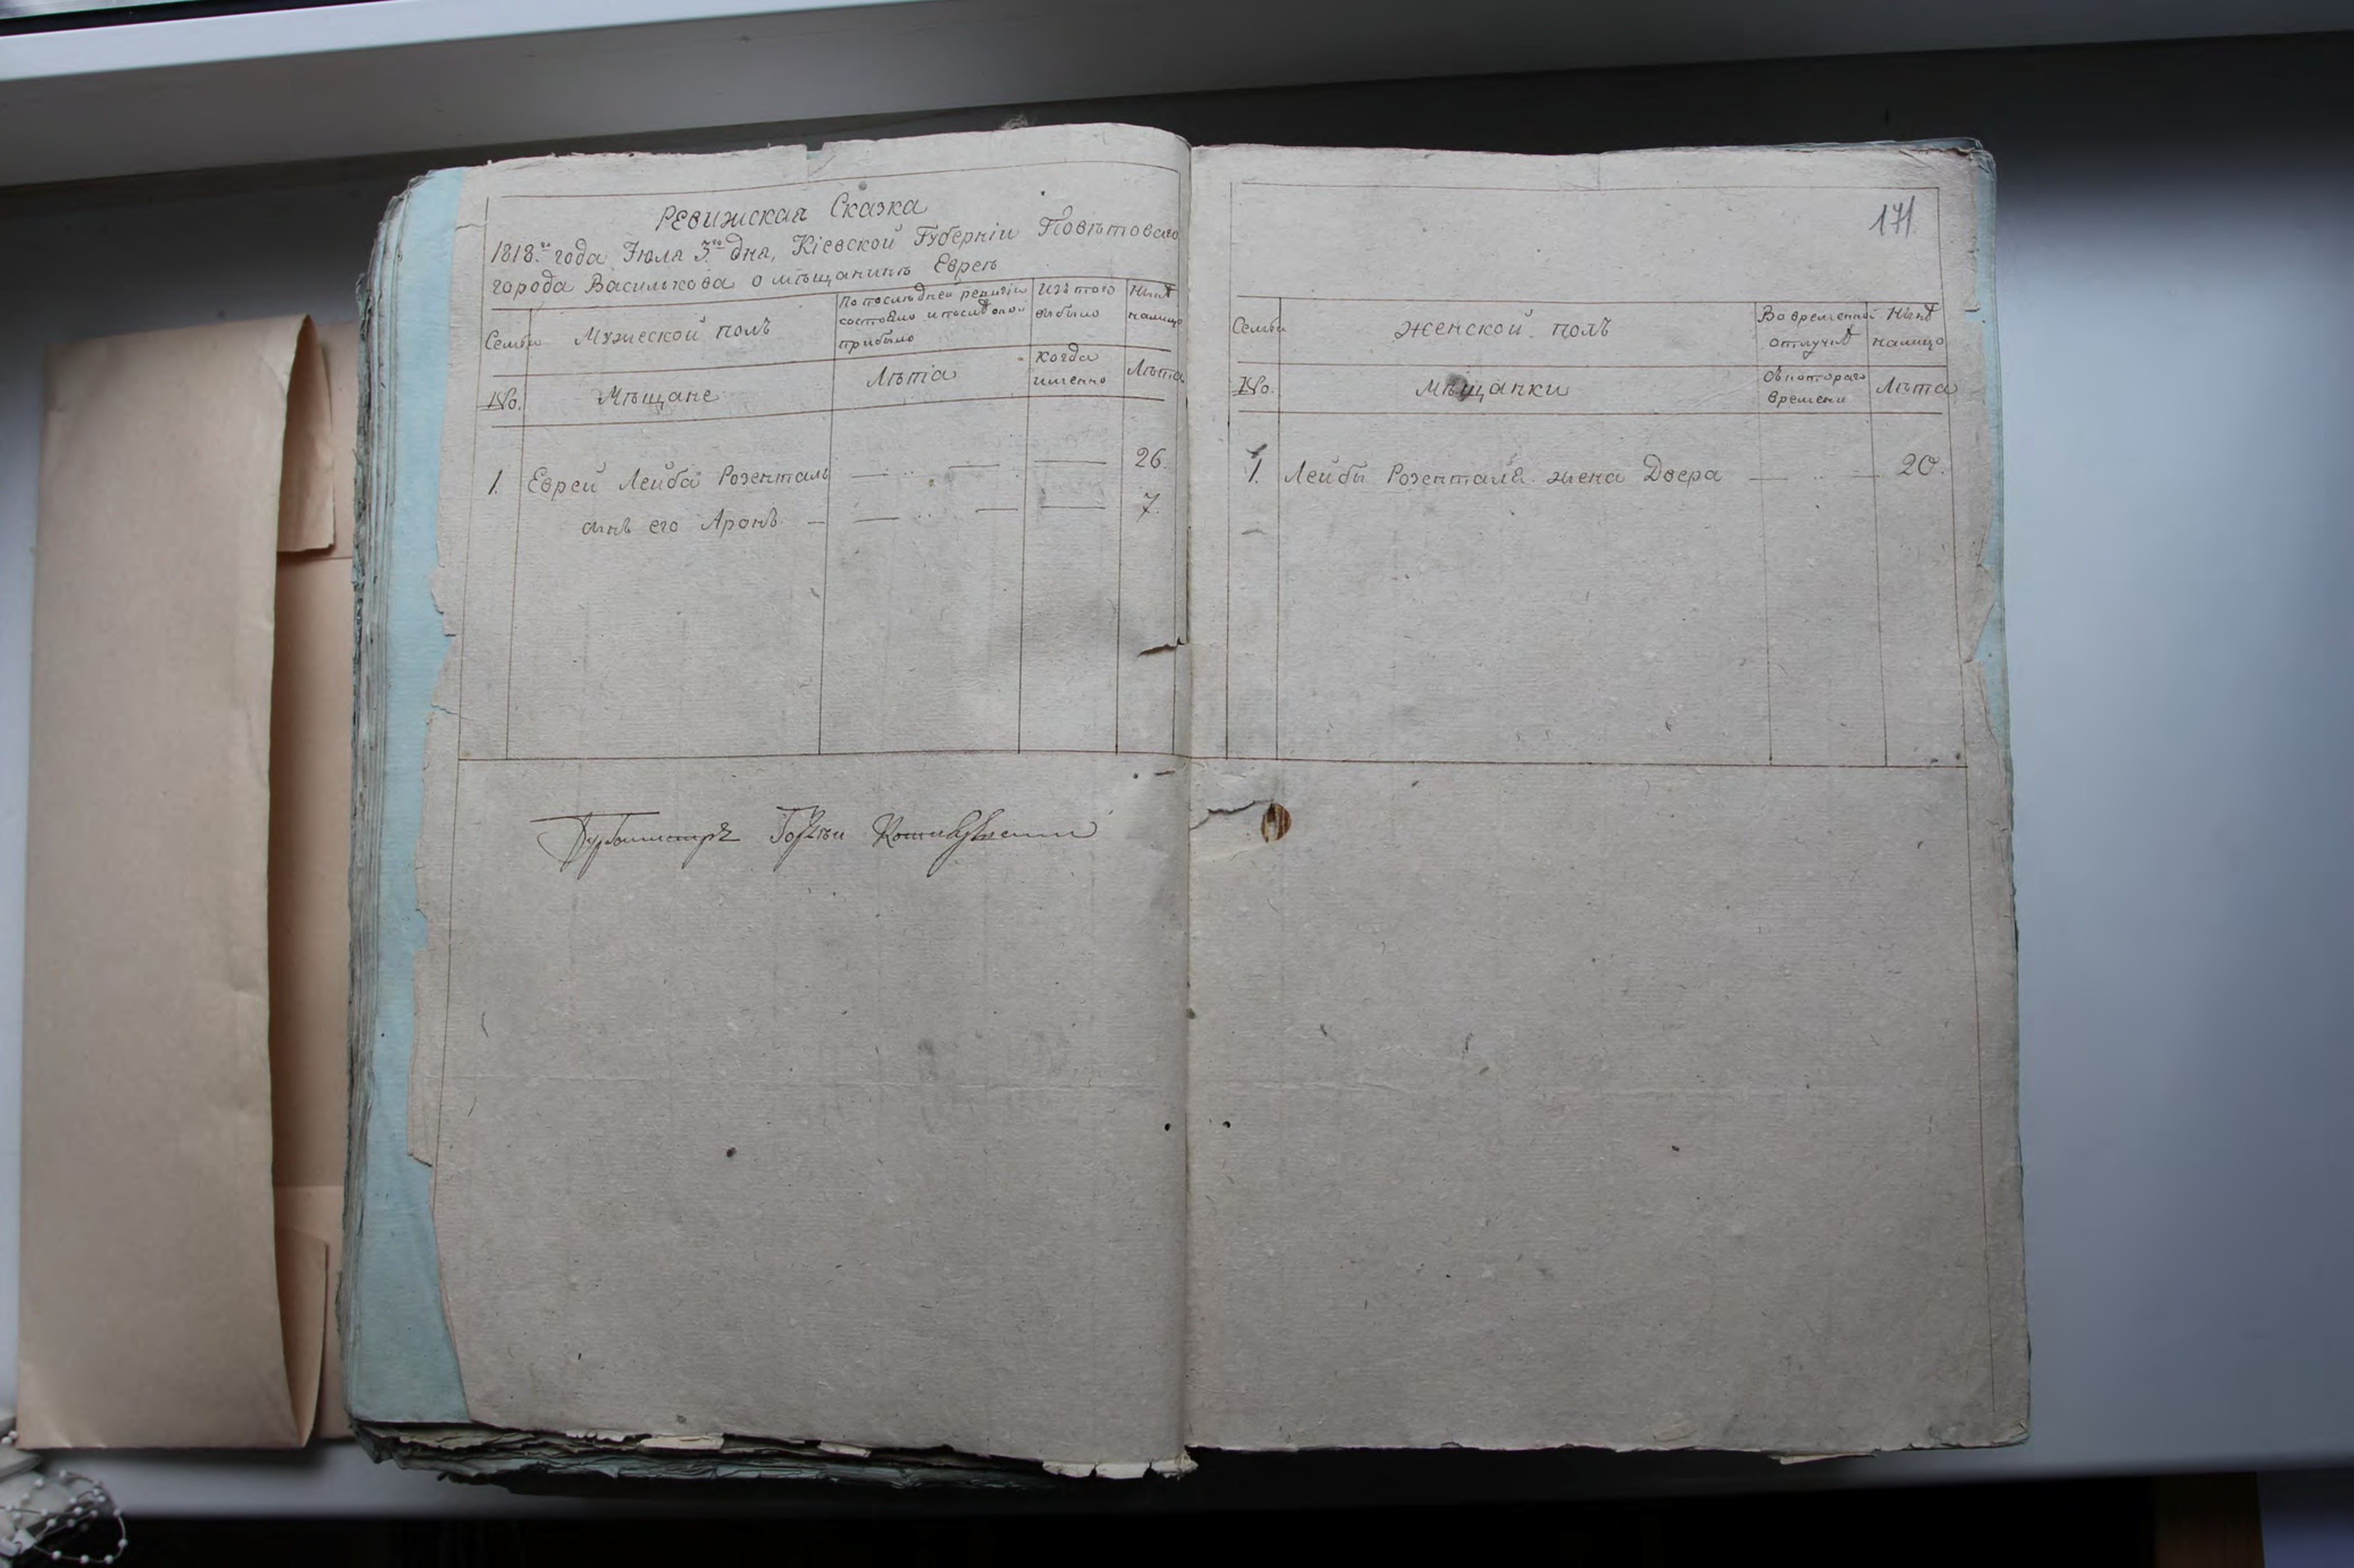 Ревижская Сказка
1818го года Іюля 3го дня, Кіевской Губерніи Повѣтоваго
города Василькова о мѣщанинѣ Евреѣ
Семьи
Мужеской полъ
По последней ревизіи
состояло и после оной
прибыло
Изъ того
выбыло
Нынѣ
налицо
No.
Мѣщане
Лѣта
когда
именно
Лѣта
1. Еврей Лейба Розенталь 26.
сынъ его Аронъ 7.
171
Семьи
Женской полъ
Во временной
отлучкѣ
Нынѣ
налицо
No.
Мѣщанки
Съ котораго
времени
Лѣта
1. Лейбы Розенталя жена Двера 20.
Бургомистръ